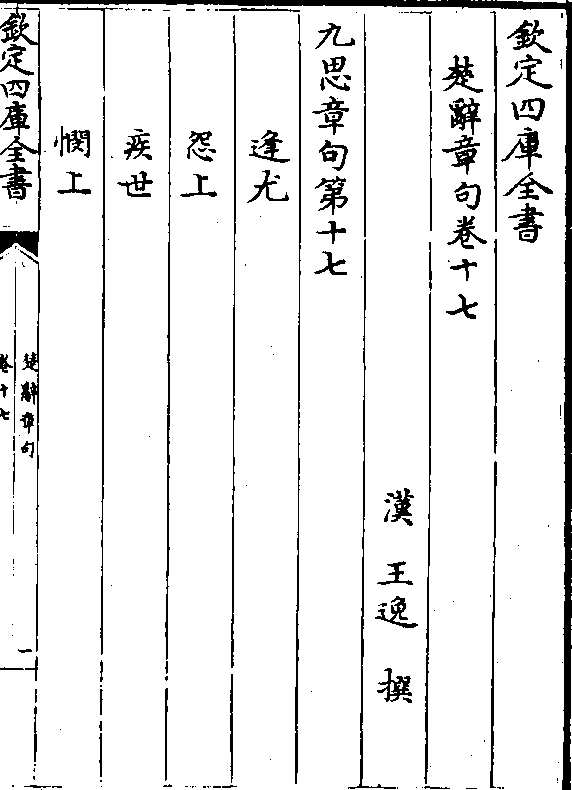 欽定四庫全書
楚辭章句卷十七
漢 王逸 撰
九思章句第十七
逢尤
怨上
疾世
憫上
欽定四庫全書
楚辭章句
卷十七
一